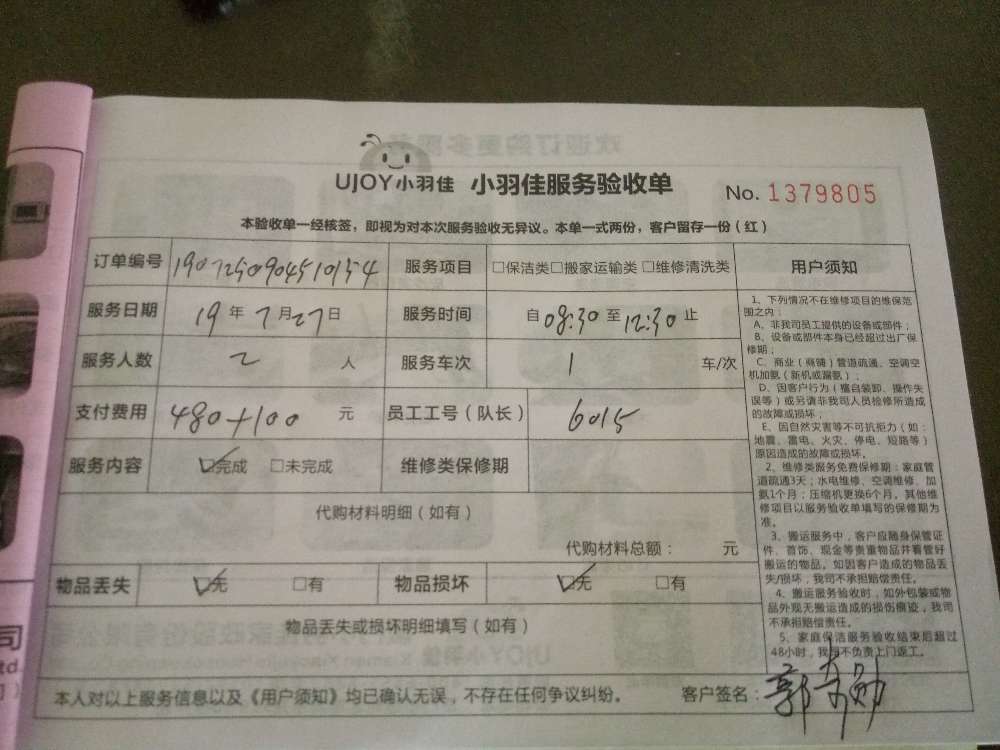 UJOY小羽佳 小羽佳服务验收单 No. 1379805
本验收单一经核签，即视为对本次服务验收无异议。本单一式两份，客户留存一份（红）
订单编号 1907250904510154 服务项目 □保洁类□搬家运输类□维修清洗类
服务日期 19年7月27日 服务时间 自08:30至12:30止
服务人数 2 人 服务车次 1 车/次
支付费用 480+100 元 员工工号（队长） 6015
服务内容 ☑完成 □未完成 维修类保修期
代购材料明细（如有）
代购材料总额： 元
物品丢失 ☑无 □有 物品损坏 ☑无 □有
物品丢失或损坏明细填写（如有）
本人对以上服务信息以及《用户须知》均已确认无误，不存在任何争议纠纷。 客户签名：
用户须知
1、下列情况不在维修项目的维保范
围之内：
A、非我司员工提供的设备或部件；
B、设备或部件本身已经超过出厂保
修期；
C、商业（商铺）管道疏通、空调空
机加氨（新机或漏氨）；
D、因客户行为（擅自装卸、操作失
误等）或另请非我司人员检修所造成
的故障或损坏；
E、因自然灾害等不可抗拒力（如：
地震、雷电、火灾、停电、短路等）
原因造成的故障或损坏。
2、维修类服务免费保修期：家庭管
道疏通3天；水电维修、空调维修、加
氨1个月；压缩机更换6个月。其他维
修项目以服务验收单填写的保修期为
准。
3、搬运服务中，客户应随身保管证
件、首饰、现金等贵重物品并看管好
搬运的物品。如因客户造成的物品丢
失/损坏，我司不承担赔偿责任。
4、搬运服务验收时，如外包装或物
品外观无搬运造成的损伤痕迹，我司
不承担赔偿责任。
5、家庭保洁服务验收结束后超过
48小时，我司不负责上门返工。
司
td.